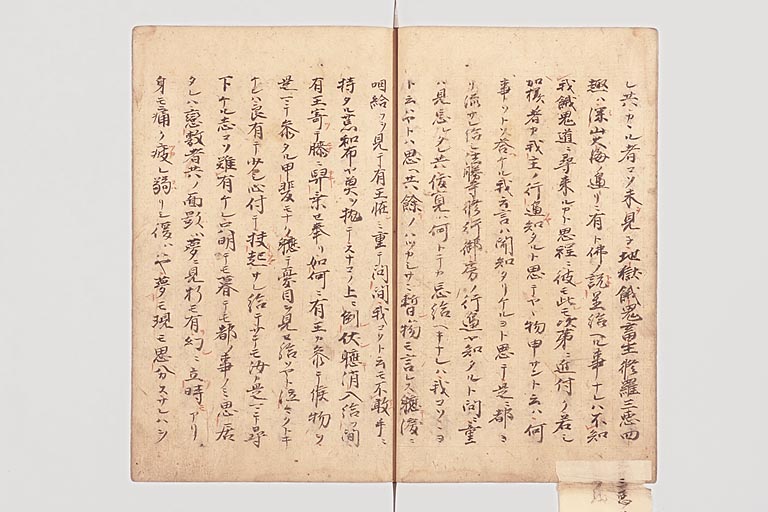 レ共カヽル者コソ未見ヨ地獄餓鬼畜生修羅三悪四
趣ハ深山大海邊リニ有ト佛ノ説置給ヘル事ナレハ不知
我餓鬼道ニ尋来ルカト思程ニ彼モ此モ次第ニ近付ク若シ
加様ノ者カ我主ノ行通知タルト思テヤヽ物申サントエハ何
事ソト答ケル我方言ハ聞知タリケルヨト思テ是ニ都ニ
リ流サレ給シ法勝寺修行御房ノ行通ヤ知タルト問ニ重
ハ見忘ルレ共僧寛ハ何トテカ忘給ヘキナレハ我コソニヨ
トエハヤト思ヘ共餘ノハツカシサニ暫ハ物モ言レス聴涙ニ
咽給フヲ見テ有王恠ミ重テ問間我コソトエモ不敢手ニ
持タル荒和布ヤ莫ツ抛テスナコノ上ニ倒伏聴消入給ヲ間
有王寄テ膝ニ舁乗セ奉リ如何ニ有王カ参テ候物ヲ
是ニテ参タル甲斐モナク聴テ憂目ヲ見セ給ソヤト泣々クトキ
ケレハ良有テ少巴心付テ扶起サレ給テサテモ汝カ是ニテ尋
下ケル志コソ難有ケレ只明テモ暮テモ都ノ事ノミ思居
タレハ戀敷者共ノ面影ハ夢ニ見折モ有幻ニ立時モアリ
身モ痛ク疲レ弱リシ後ハハヤ夢モ現モ思分スサレハシ